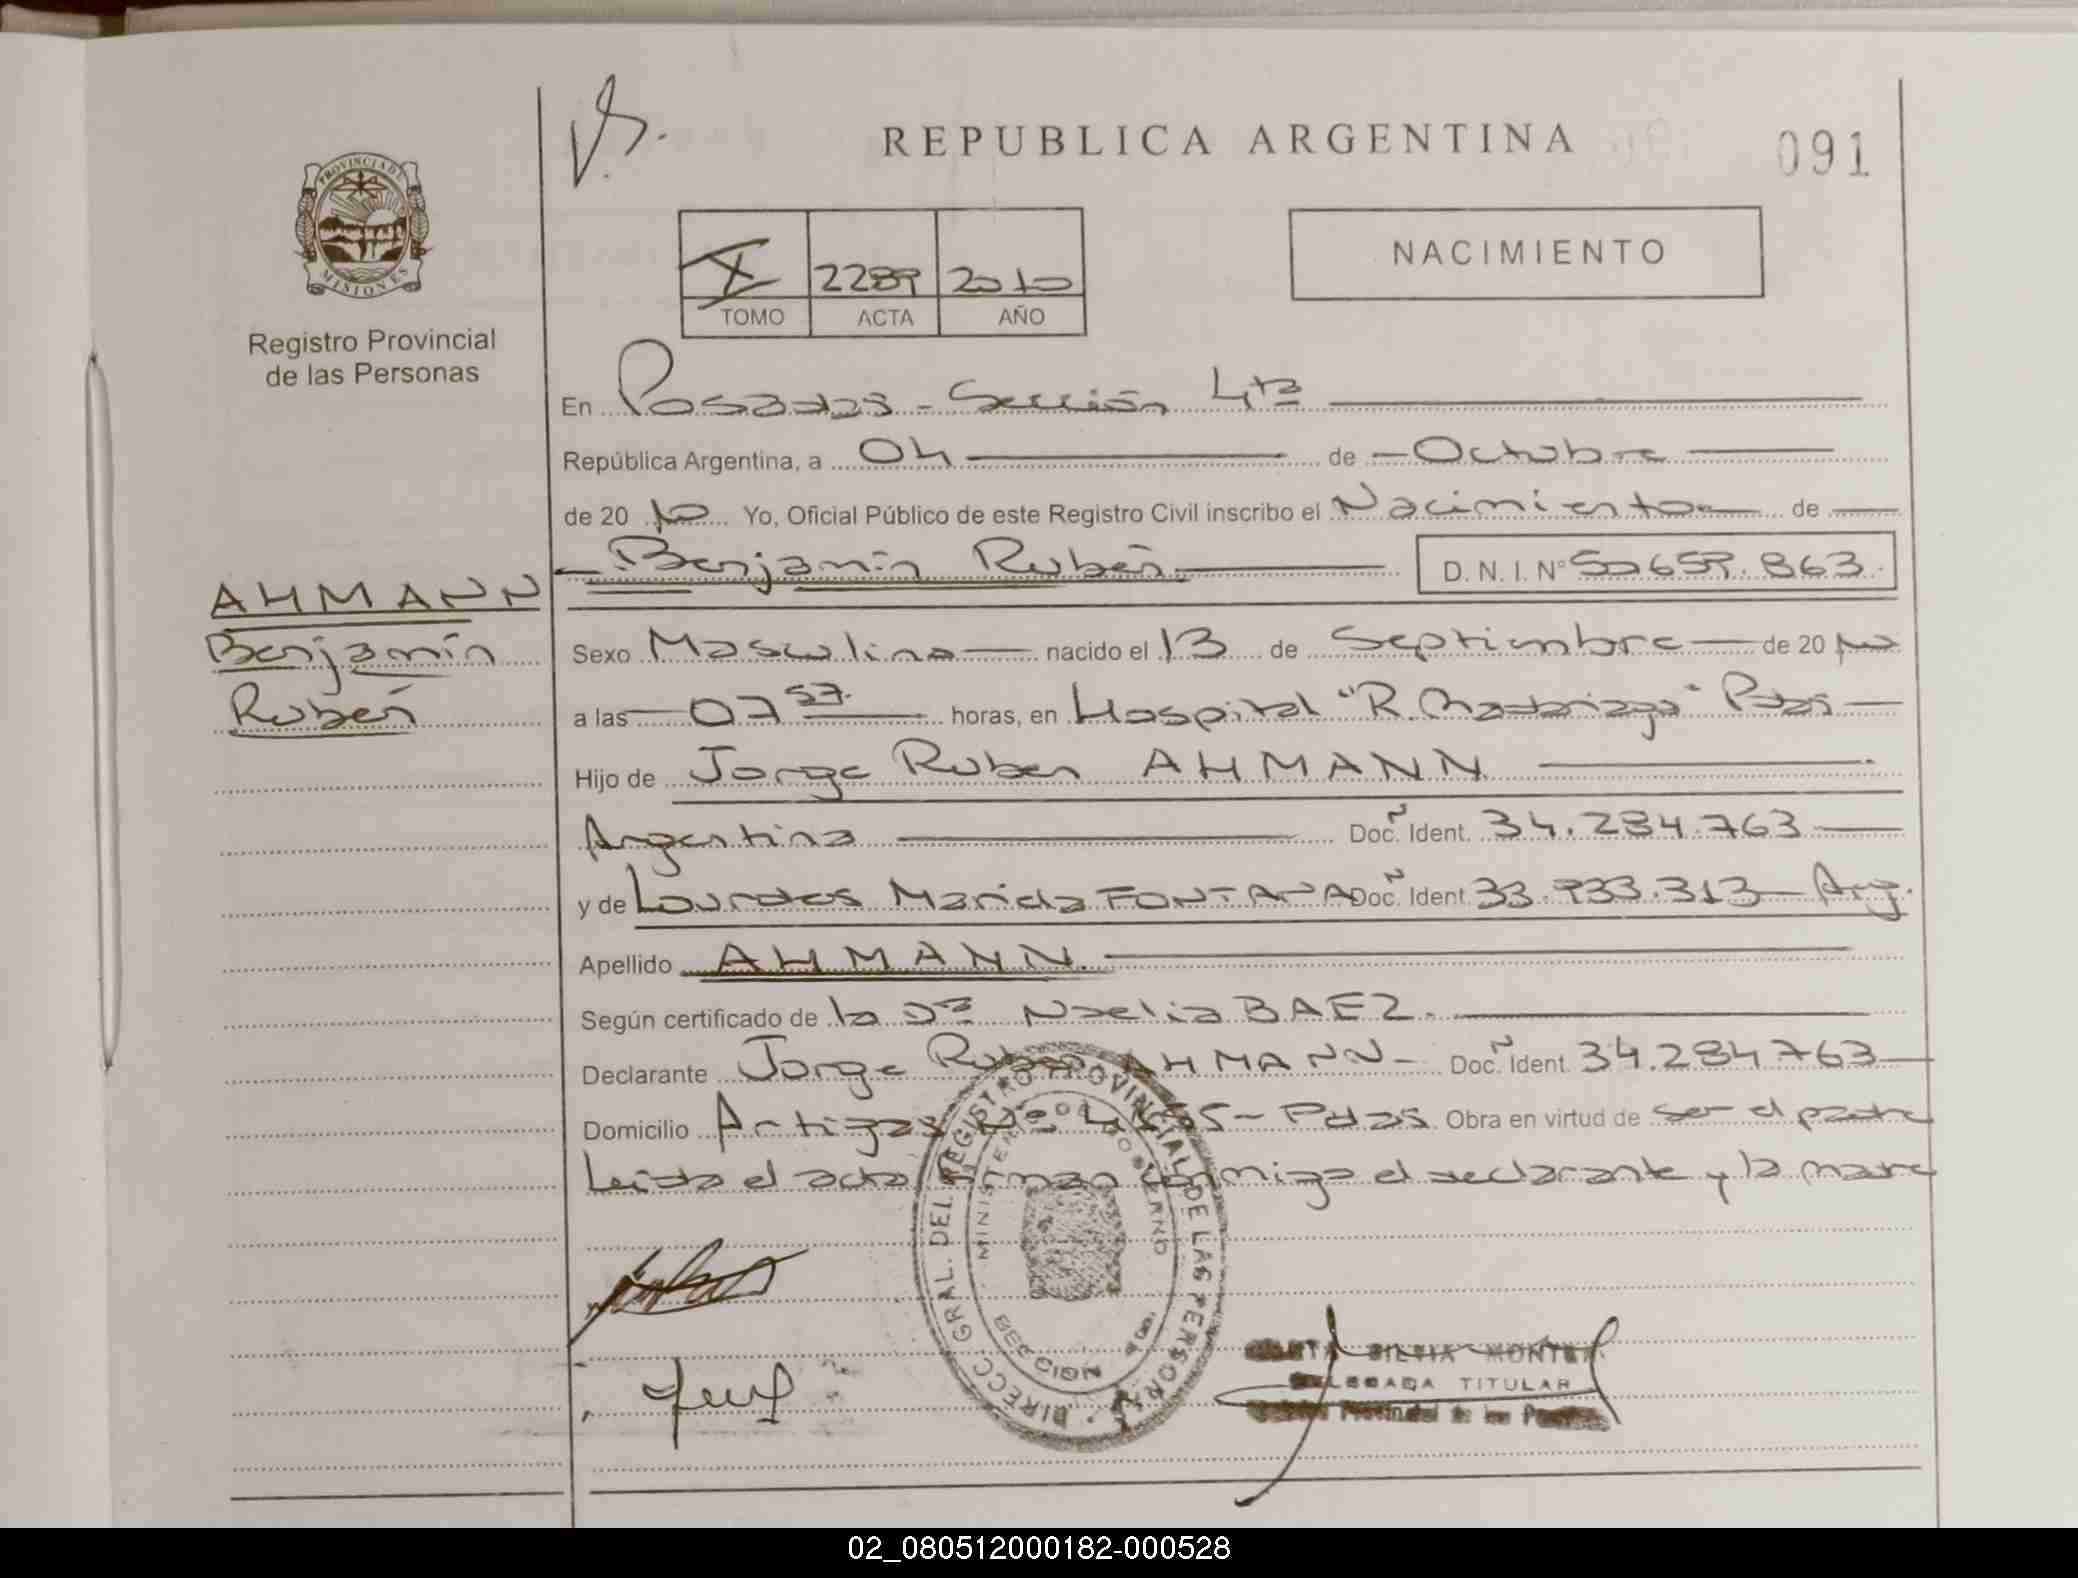 REPUBLICA ARGENTINA
091
PROVINCIA DE MISIONES
Registro Provincial
de las Personas
X 2289 2010
TOMO ACTA AÑO
NACIMIENTO
En Posadas - Sección 4ta
República Argentina, a 04 de Octubre
de 2010 Yo, Oficial Público de este Registro Civil inscribo el Nacimiento de
Benjamín Rubén D. N. I. Nº 50659.863
AHMANN
Benjamín
Rubén
Sexo Masculino nacido el 13 de Septiembre de 2010
a las 07 57 horas, en Hospital "R. Madariaga" Pdas
Hijo de Jorge Ruben AHMANN
Argentina Doc. Ident. 34.284.763
y de Lourdes Mariela FONTANA Doc. Ident. 33.933.313 Arg.
Apellido AHMANN
Según certificado de la Dra Noelia BAEZ.
Declarante Jorge Ruben AHMANN - Doc. Ident. 34.284.763
Domicilio Artigas Nº - Pdas Obra en virtud de ser el padre
Leida el acta firman conmigo el declarante y la madre
DIRECC. GRAL. DEL REGISTRO PROVINCIAL DE LAS PERSONAS
MINISTERIO DE GOBIERNO
SECCION
SILVIA
DELEGADA TITULAR
Provincial de las
02_080512000182-000528